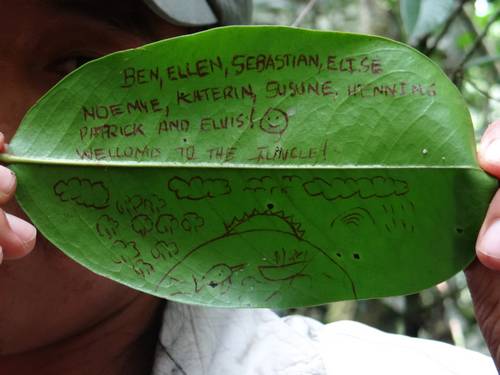 BEN, ELLEN, SEBASTIAN, ELISE
NOEMIE, KATERIN, SUSUNE, HENNING
PATRICK AND ELVIS!
WELLCOME TO THE JUNGLE!